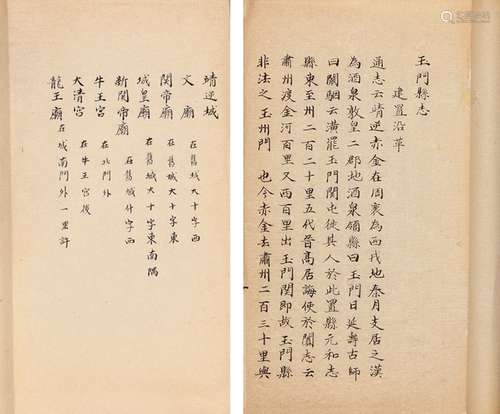 玉門縣志
建置沿革
通志云靖逆赤金在周衷為西戎地秦月支居之漢
為酒泉敦皇二郡地酒泉領縣曰玉門曰延壽古師
曰闞駰云漢罷玉門関屯徙其人於此置縣元和志
縣東至州二百二十里五代晉高居誨使於闐志云
肅州渡金河百里又西百里出玉門関即故玉門縣
非法之玉州門 也今赤金去肅州二百三十里與
靖逆城
文廟 在舊城大十字西
関帝廟 在舊城大十字東
城皇廟 在舊城大十字東南隅
新関帝廟 在舊城什字西
牛王宮 在北門外
大清宮 在牛王宮後
龍王廟 在城南門外一里許